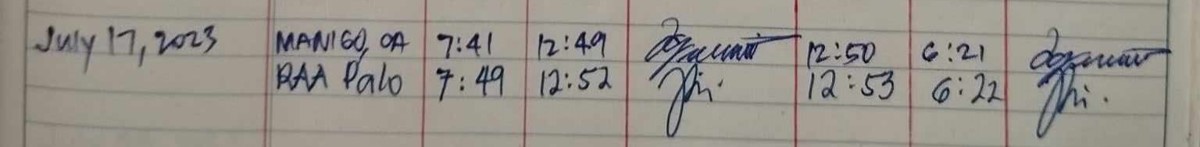 July 17, 2023 MANIGO, OA 7:41 12:49 12:50 6:21
RAA Palo 7:49 12:52 12:53 6:22